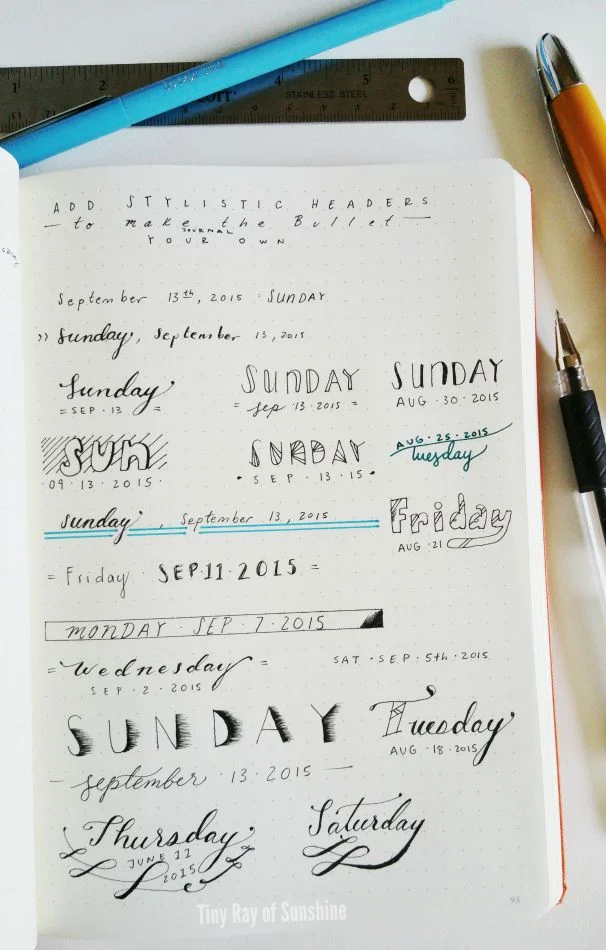 1 2 4 5 6
STAINLESS STEEL
ADD STYLISTIC HEADERS
— to make the Bullet —
JOURNAL
YOUR OWN
September 13th, 2015 · SUNDAY
›› Sunday, September 13, 2015
Sunday
= SEP · 13 =
SUNDAY
= Sep · 13 · 2015 =
SUNDAY
AUG · 30 · 2015
SUN
· 09 · 13 · 2015 ·
SUNDAY
• SEP · 13 · 15 •
AUG · 25 · 2015
Tuesday
sunday , September 13, 2015
Friday
AUG · 21
= Friday SEP·11·2015 =
MONDAY · SEP · 7 · 2015
= Wednesday =
SEP · 2 · 2015
SAT · SEP · 5th · 2015
SUNDAY
— September · 13 · 2015 —
Tuesday
AUG · 18 · 2015
Thursday
JUNE 11
2015
Saturday
Tiny Ray of Sunshine